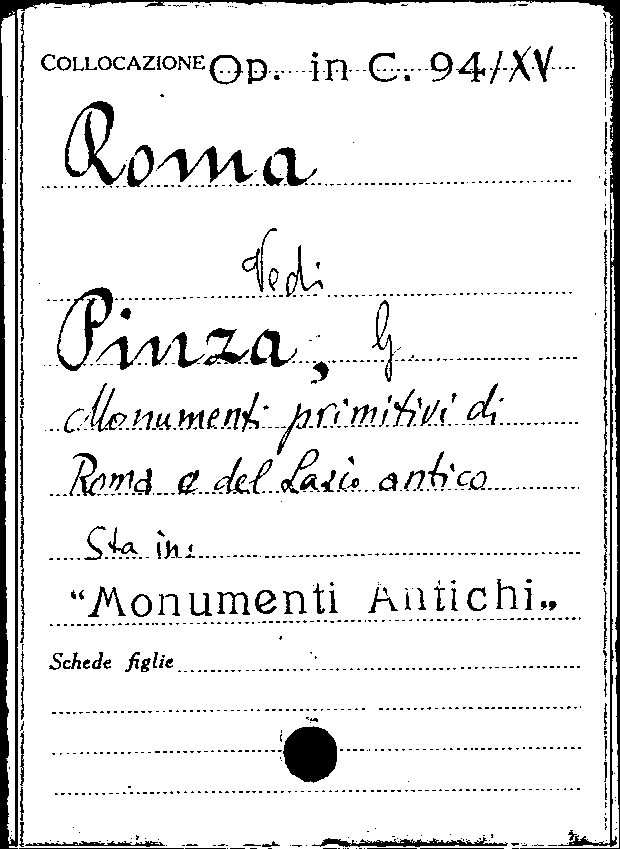 COLLOCAZIONE Op. in C. 94/XV
Roma
Vedi
Pinza, G.
Monumenti primitivi di
Roma e del Lazio antico
Sta in:
"Monumenti Antichi„
Schede figlie